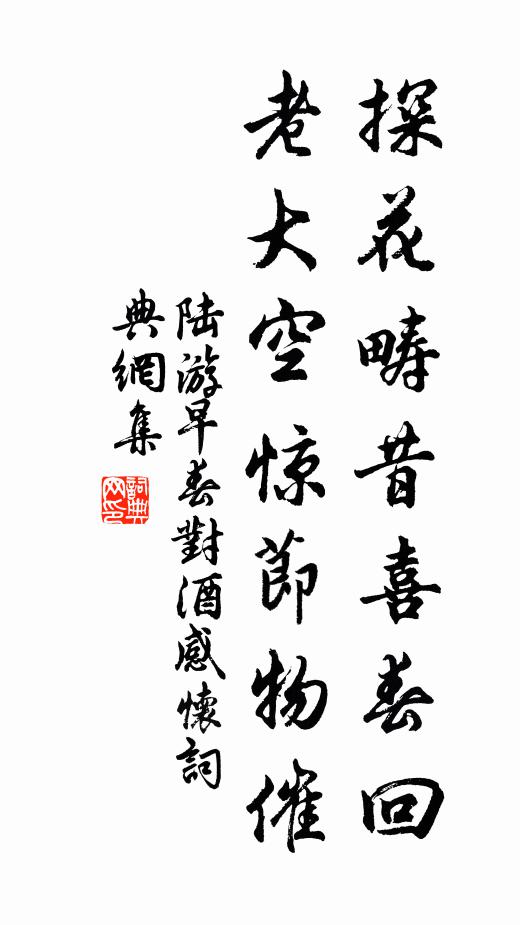 探花畴昔喜春回
老大空惊節物催
陆游早春對酒感懷詞
典網集
詞典网印